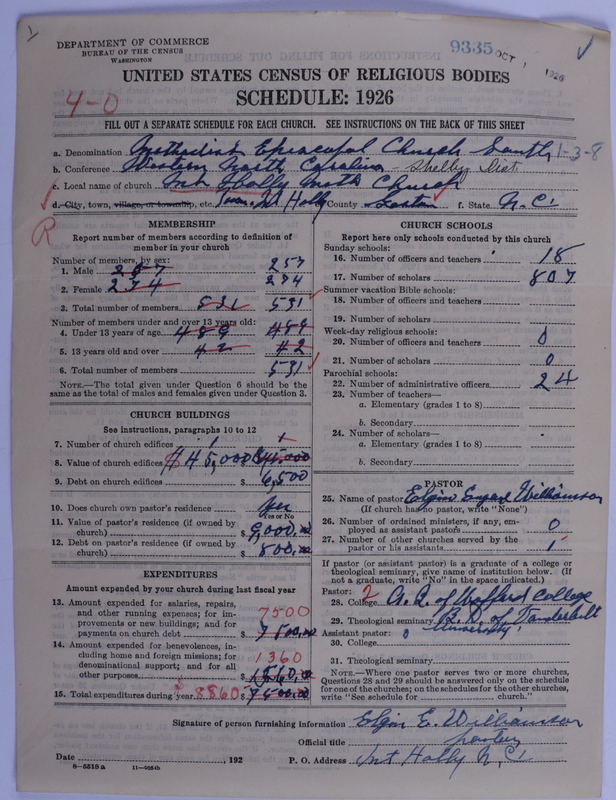 DEPARTMENT OF COMMERCE
BUREAU OF THE CENSUS
WASHINGTON
9335 OCT 1 1926
UNITED STATES CENSUS OF RELIGIOUS BODIES
SCHEDULE: 1926
4-0
FILL OUT A SEPARATE SCHEDULE FOR EACH CHURCH. SEE INSTRUCTIONS ON THE BACK OF THIS SHEET
a. Denomination Methodist Episcopal Church South 1-3-8
b. Conference Western North Carolina Shelby Dist.
c. Local name of church Mt Holly Meth Church
d. City, town, village, or township, etc. Town Mt Holly County Gaston f. State N.C.
R
MEMBERSHIP
Report number of members according to definition of member in your church
Number of members, by sex:
1. Male 257 257
2. Female 274 274
3. Total number of members 531 531
Number of members under and over 13 years old:
4. Under 13 years of age 489 489
5. 13 years old and over 42 42
6. Total number of members 531
NOTE.—The total given under Question 6 should be the same as the total of males and females given under Question 3.
CHURCH BUILDINGS
See instructions, paragraphs 10 to 12
7. Number of church edifices 1 1
8. Value of church edifices $45,000 $ 45,000
9. Debt on church edifices $ 6,500
10. Does church own pastor's residence yes
Yes or No
11. Value of pastor's residence (if owned by church) $ 9,000.00
12. Debt on pastor's residence (if owned by church) $ 800.00
EXPENDITURES
Amount expended by your church during last fiscal year
13. Amount expended for salaries, repairs, and other running expenses; for improvements or new buildings; and for payments on church debt 7500 $ 7500.00
14. Amount expended for benevolences, including home and foreign missions; for denominational support; and for all other purposes 1360 1360.00
15. Total expenditures during year 8860 $ 7500.00
CHURCH SCHOOLS
Report here only schools conducted by this church
Sunday schools:
16. Number of officers and teachers 18
17. Number of scholars 807
Summer vacation Bible schools:
18. Number of officers and teachers
19. Number of scholars
Week-day religious schools:
20. Number of officers and teachers 0
21. Number of scholars 0
Parochial schools:
22. Number of administrative officers 24
23. Number of teachers—
a. Elementary (grades 1 to 8)
b. Secondary
24. Number of scholars—
a. Elementary (grades 1 to 8)
b. Secondary
PASTOR
25. Name of pastor Elgin Williamson
(If church has no pastor, write "None")
26. Number of ordained ministers, if any, employed as assistant pastors 0
27. Number of other churches served by the pastor or his assistants 1
If pastor (or assistant pastor) is a graduate of a college or theological seminary, give name of institution below. (If not a graduate, write "No" in the space indicated.)
Pastor: 2
28. College A.B. of Wofford College
29. Theological seminary B.D. of Vanderbilt University
Assistant pastor: 0
30. College
31. Theological seminary
NOTE.—Where one pastor serves two or more churches, Questions 28 and 29 should be answered only on the schedule for one of the churches; on the schedules for the other churches, write "See schedule for church."
Signature of person furnishing information Elgin E. Williamson
Official title pastor
Date , 192 P. O. Address Mt Holly N.C.
8—5519 a 11—9064b